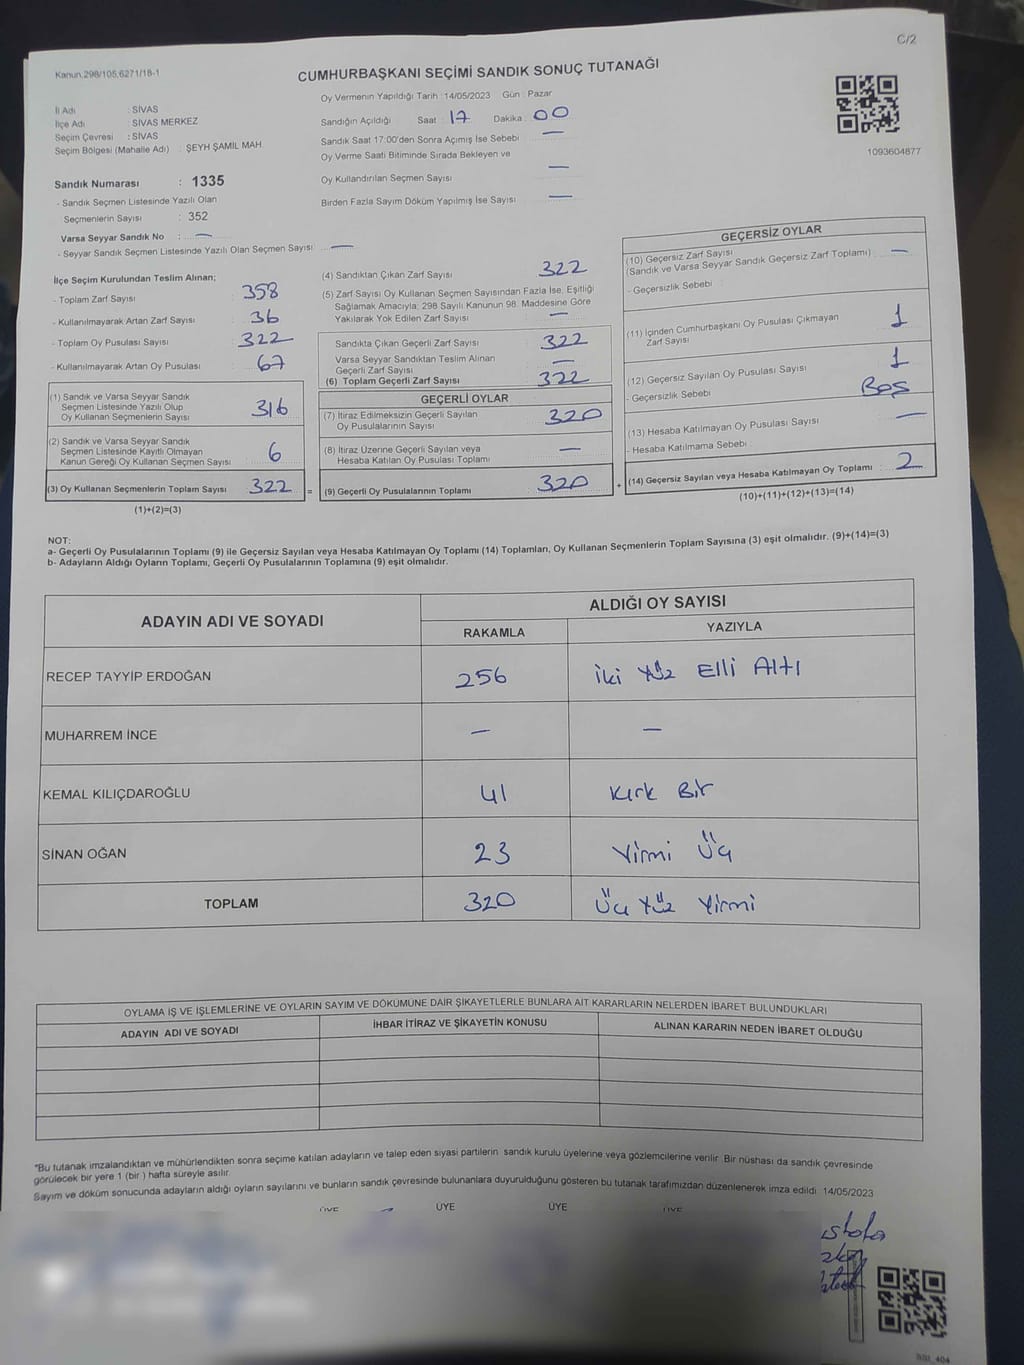 C/2
Kanun.298/105.6271/18-1
CUMHURBAŞKANI SEÇİMİ SANDIK SONUÇ TUTANAĞI
Oy Vermenin Yapıldığı Tarih : 14/05/2023 Gün : Pazar
İl Adı : SİVAS
İlçe Adı : SİVAS MERKEZ
Seçim Çevresi : SİVAS
Seçim Bölgesi (Mahalle Adı) : ŞEYH ŞAMİL MAH.
Sandığın Açıldığı Saat : 17 Dakika : 00
Sandık Saat 17:00'den Sonra Açımış İse Sebebi —
Oy Verme Saati Bitiminde Sırada Bekleyen ve
Oy Kullandırılan Seçmen Sayısı —
Birden Fazla Sayım Döküm Yapılmış İse Sayısı —
1093604877
Sandık Numarası : 1335
- Sandık Seçmen Listesinde Yazılı Olan
Seçmenlerin Sayısı : 352
Varsa Seyyar Sandık No : —
- Seyyar Sandık Seçmen Listesinde Yazılı Olan Seçmen Sayısı : —
İlçe Seçim Kurulundan Teslim Alınan;
- Toplam Zarf Sayısı : 358
- Kullanılmayarak Artan Zarf Sayısı : 36
- Toplam Oy Pusulası Sayısı : 322
- Kullanılmayarak Artan Oy Pusulası : 67
(1) Sandık ve Varsa Seyyar Sandık
Seçmen Listesinde Yazılı Olup
Oy Kullanan Seçmenlerin Sayısı 316
(2) Sandık ve Varsa Seyyar Sandık
Seçmen Listesinde Kayıtlı Olmayan
Kanun Gereği Oy Kullanan Seçmen Sayısı 6
(3) Oy Kullanan Seçmenlerin Toplam Sayısı 322
(1)+(2)=(3)
(4) Sandıktan Çıkan Zarf Sayısı 322
(5) Zarf Sayısı Oy Kullanan Seçmen Sayısından Fazla İse, Eşitliği
Sağlamak Amacıyla; 298 Sayılı Kanunun 98. Maddesine Göre
Yakılarak Yok Edilen Zarf Sayısı —
Sandıkta Çıkan Geçerli Zarf Sayısı 322
Varsa Seyyar Sandıktan Teslim Alınan
Geçerli Zarf Sayısı —
(6) Toplam Geçerli Zarf Sayısı 322
GEÇERLİ OYLAR
(7) İtiraz Edilmeksizin Geçerli Sayılan
Oy Pusulalarının Sayısı 320
(8) İtiraz Üzerine Geçerli Sayılan veya
Hesaba Katılan Oy Pusulası Toplamı —
= (9) Geçerli Oy Pusulalarının Toplamı 320 +
GEÇERSİZ OYLAR
(10) Geçersiz Zarf Sayısı
(Sandık ve Varsa Seyyar Sandık Geçersiz Zarf Toplamı) : —
- Geçersizlik Sebebi :
(11) İçinden Cumhurbaşkanı Oy Pusulası Çıkmayan
Zarf Sayısı 1
(12) Geçersiz Sayılan Oy Pusulası Sayısı 1
- Geçersizlik Sebebi Boş
(13) Hesaba Katılmayan Oy Pusulası Sayısı —
- Hesaba Katılmama Sebebi :
(14) Geçersiz Sayılan veya Hesaba Katılmayan Oy Toplamı : 2
(10)+(11)+(12)+(13)=(14)
NOT:
a- Geçerli Oy Pusulalarının Toplamı (9) ile Geçersiz Sayılan veya Hesaba Katılmayan Oy Toplamı (14) Toplamları, Oy Kullanan Seçmenlerin Toplam Sayısına (3) eşit olmalıdır. (9)+(14)=(3)
b- Adayların Aldığı Oyların Toplamı, Geçerli Oy Pusulalarının Toplamına (9) eşit olmalıdır.
ADAYIN ADI VE SOYADI ALDIĞI OY SAYISI
RAKAMLA YAZIYLA
RECEP TAYYİP ERDOĞAN 256 iki Yüz Elli Altı
MUHARREM İNCE — —
KEMAL KILIÇDAROĞLU 41 Kırk Bir
SİNAN OĞAN 23 Yirmi Üç
TOPLAM 320 Üç Yüz Yirmi
OYLAMA İŞ VE İŞLEMLERİNE VE OYLARIN SAYIM VE DÖKÜMÜNE DAİR ŞİKAYETLERLE BUNLARA AİT KARARLARIN NELERDEN İBARET BULUNDUKLARI
ADAYIN ADI VE SOYADI İHBAR İTİRAZ VE ŞİKAYETİN KONUSU ALINAN KARARIN NEDEN İBARET OLDUĞU
*Bu tutanak imzalandıktan ve mühürlendikten sonra seçime katılan adayların ve talep eden siyasi partilerin sandık kurulu üyelerine veya gözlemcilerine verilir. Bir nüshası da sandık çevresinde
görülecek bir yere 1 (bir ) hafta süreyle asılır.
Sayım ve döküm sonucunda adayların aldığı oyların sayılarını ve bunların sandık çevresinde bulunanlara duyurulduğunu gösteren bu tutanak tarafımızdan düzenlenerek imza edildi. 14/05/2023
ÜYE ÜYE ÜYE ÜYE